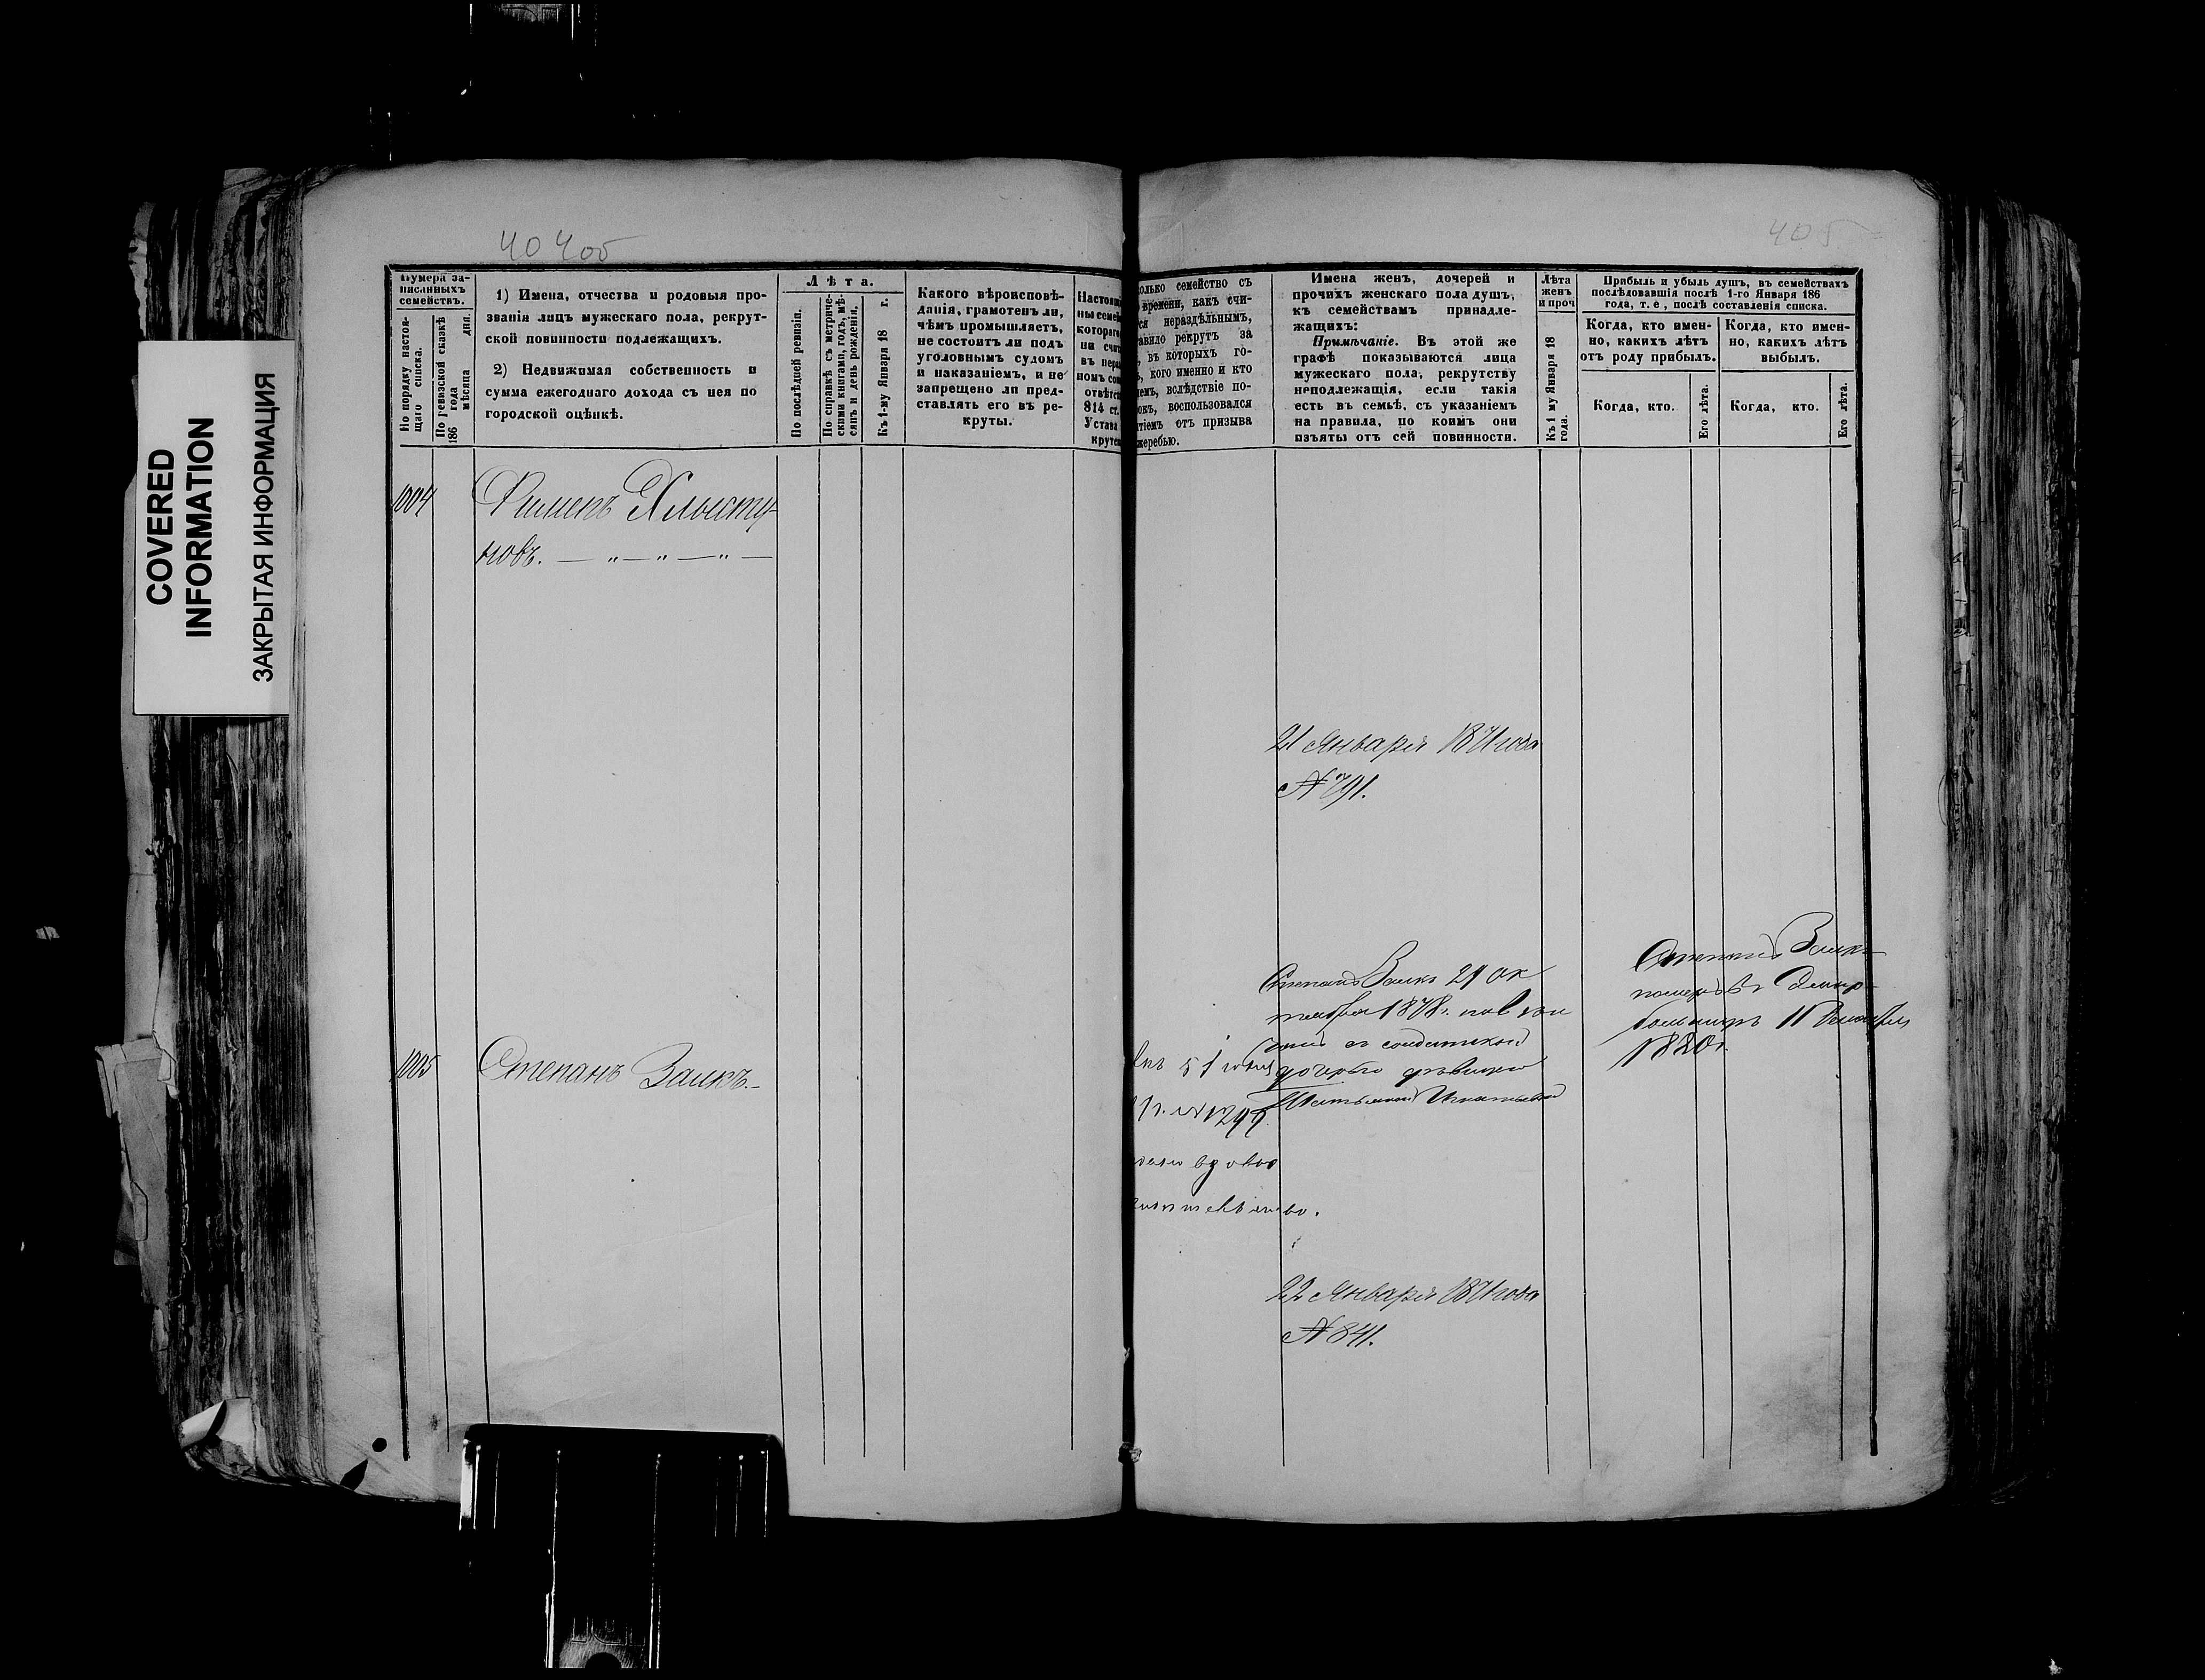 COVERED
INFORMATION
ЗАКРЫТАЯ ИНФОРМАЦИЯ
404об
Нумера за-
писанныхъ
семействъ.
По порядку настоя-
щаго списка.
По ревизской сказкѣ
186 года
мѣсяца дня.
1) Имена, отчества и родовыя про-
званія лицъ мужескаго пола, рекрут-
ской повинности подлежащихъ.
2) Недвижимая собственность и
сумма ежегоднаго дохода съ нея по
городской оцѣнкѣ.
Лѣта.
По послѣдней ревизіи.
По справкѣ съ метриче-
скими книгами, годъ, мѣ-
сяцъ и день рожденія.
Къ 1-му Января 18 г.
Какого вѣроисповѣ-
данія, грамотенъ ли,
чѣмъ промышляетъ,
не состоитъ ли подъ
уголовнымъ судомъ
и наказаніемъ, и не
запрещено ли пред-
ставлять его въ ре-
круты.
Настоящ
ны семей
котораго
ни счит
въ нера
номъ со
отвѣтст
814 ст.
Устава
крутск
1004
Филипъ Хлысту-
новъ.
1005
Степанъ Заикъ.
405
олько семейство съ
времени, какъ счи-
ся нераздѣльнымъ,
авило рекрутъ за
, въ которыхъ го-
, кого именно и кто
іемъ, вслѣдствіе по-
окъ, воспользовался
тіемъ отъ призыва
жеребью.
Имена женъ, дочерей и
прочихъ женскаго пола душъ,
къ семействамъ принадле-
жащихъ:
Примѣчаніе. Въ этой же
графѣ показываются лица
мужескаго пола, рекрутству
неподлежащія, если такія
есть въ семьѣ, съ указаніемъ
на правила, по коимъ они
изъяты отъ сей повинности.
Лѣта
женъ
и проч
Къ 1 му Января 18
года.
Прибыль и убыль душъ, въ семействахъ
послѣдовавшія послѣ 1-го Января 186
года, т. е, послѣ составленія списка.
Когда, кто имен-
но, какихъ лѣтъ
отъ роду прибылъ.
Когда, кто имен-
но, какихъ лѣтъ
выбылъ.
Когда, кто.
Его лѣта.
Когда, кто.
Его лѣта.
21 Января 1871 года
№ 791.
Степанъ Заикъ 29 ок
тября 1878г.
съ солдатской
дочерью дѣвицею
Игнатьевой
Степанъ Заикъ
померъ въ
больницѣ 11
№ 1299.
вдовою
22 Января 1871 года
№ 841.